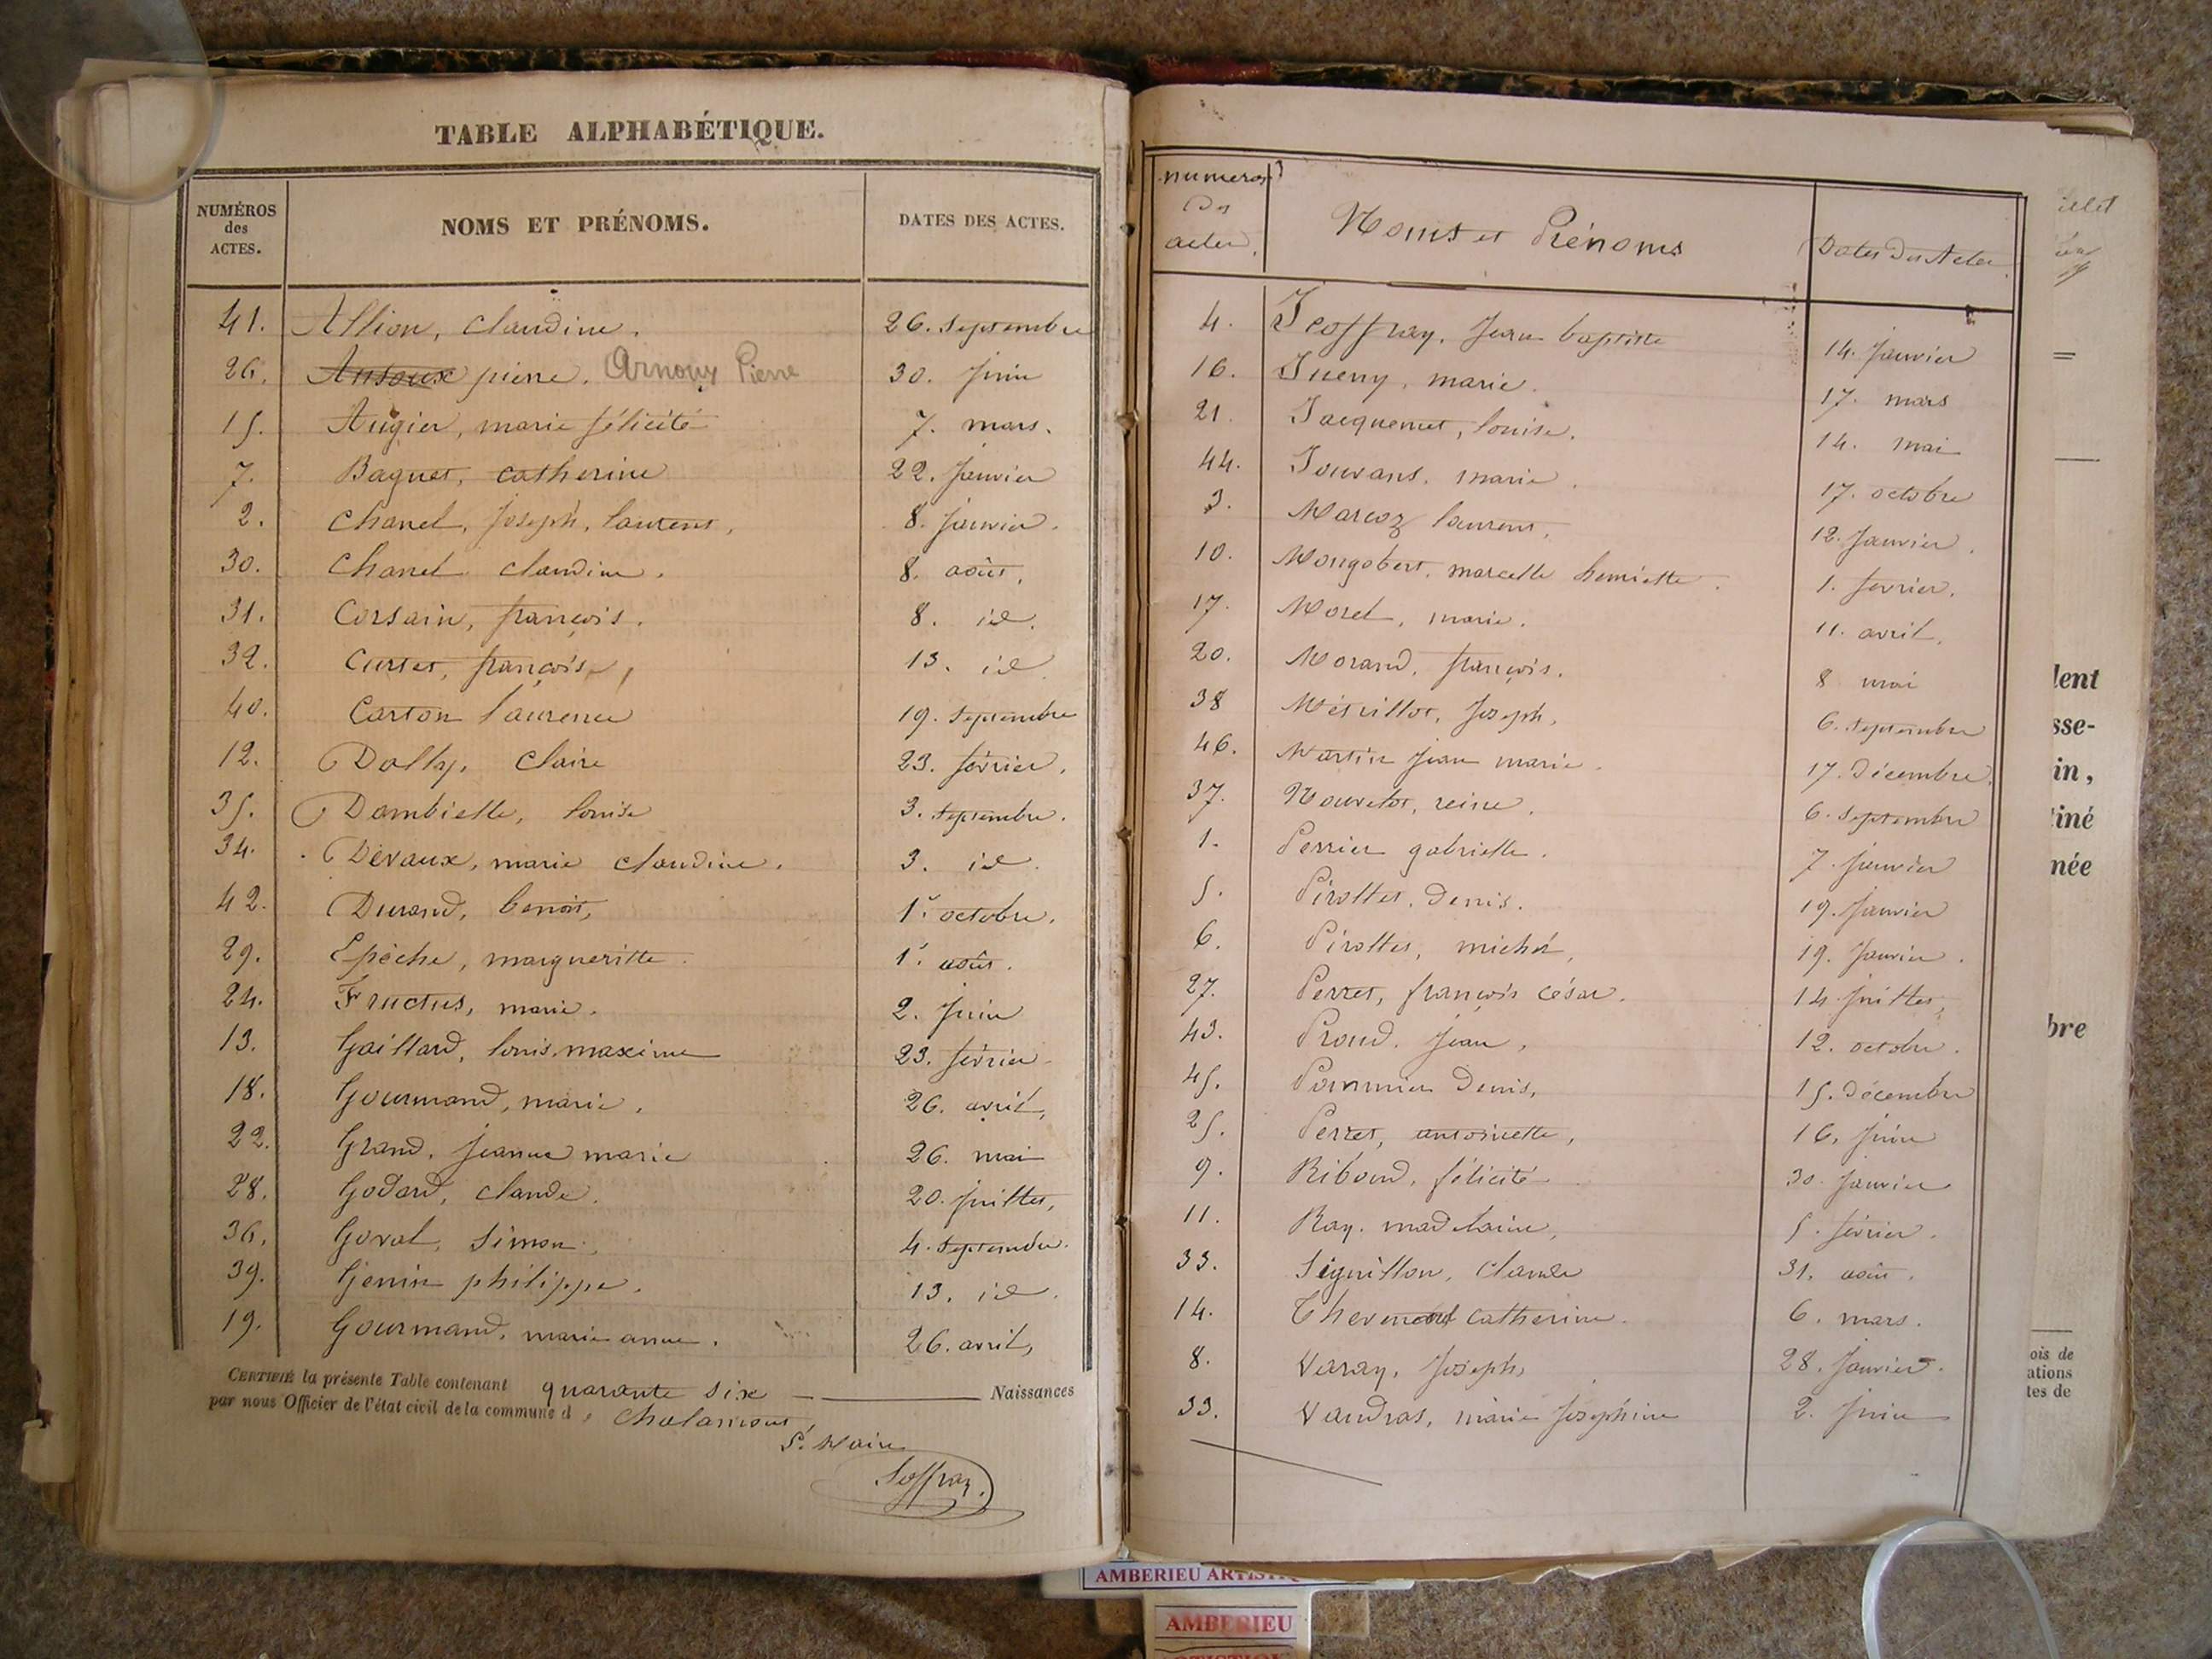 TABLE ALPHABÉTIQUE.
NUMÉROS des ACTES. NOMS ET PRÉNOMS. DATES DES ACTES.
41. Allion, claudine. 26. Septembre
26. Ansoux pierre. Arnoux Pierre 30. Juin
15. Augier, marie félicité 7. mars.
7. Baguet, catherine 22. Janvier
2. Chanel, Joseph, laurent, 8. Janvier.
30. Chanel claudine. 8. août,
31. Corsain, françois. 8. id.
32. Curtet, françois, 13. id.
40. Carton laurence 19. Septembre
12. Dolly, Claire 23. février.
35. Dambielle, louise 3. Septembre.
34. Devaux, marie claudine. 3. id.
42. Durand, benoit, 1r octobre.
29. Epèche, margueritte 1r août.
24. Fructus, marie. 2. Juin
13. Gaillard, louis maxime 23. février
18. Gourmand, marie. 26. avril,
22. Grand, Jeanne marie 26. mai
28. Godard, claude. 20. Juillet,
36. Goral, Simon. 4. Septembre.
39. Genin philippe. 13. id.
19. Gourmand, marie anne. 26. avril,
CERTIFIÉ la présente Table contenant quarante six Naissances
par nous Officier de l'état civil de la commune d e Chalamont,
Le Maire
numéros des actes. Noms et Prénoms Dates des Actes
4. Jeoffray, Jean baptiste 14. Janvier
16. Jueny, marie. 17. mars
21. Jacquemet, louise. 14. mai
44. Jouvans, marie. 17. octobre
3. Marcoz laurent, 12. Janvier.
10. Mongobert, marcelle henriette. 1. février.
17. Morel, marie. 11. avril.
20. Morand, françois. 8 mai
38 Joseph, 6. Septembre
46. Martin Jean marie. 17. Décembre.
37. Nouvelot, reine. 6. Septembre
1. Perrier gabrielle. 7. Janvier
5. Pirollet, Denis. 19. Janvier
6. Pirollet, michel, 19. Janvier.
27. Perret, françois césar. 14. Juillet,
43. Proud, Jean, 12. octobre.
45. Pommier Denis, 15. Décembre
25. Perret, antoinette, 16. Juin
9. Riboud, félicité 30. Janvier
11. Ray. madelaine, 5. février.
33. Siguillon, Claude 31. août.
14. catherine. 6. mars.
8. Varay, Joseph, 28. Janvier.
33. Vaudras, marie Josephine 2. Juin
lent
sse-
in,
tiné
née
bre
ois de
ations
tes de
AMBERIEU
AMBERIEU